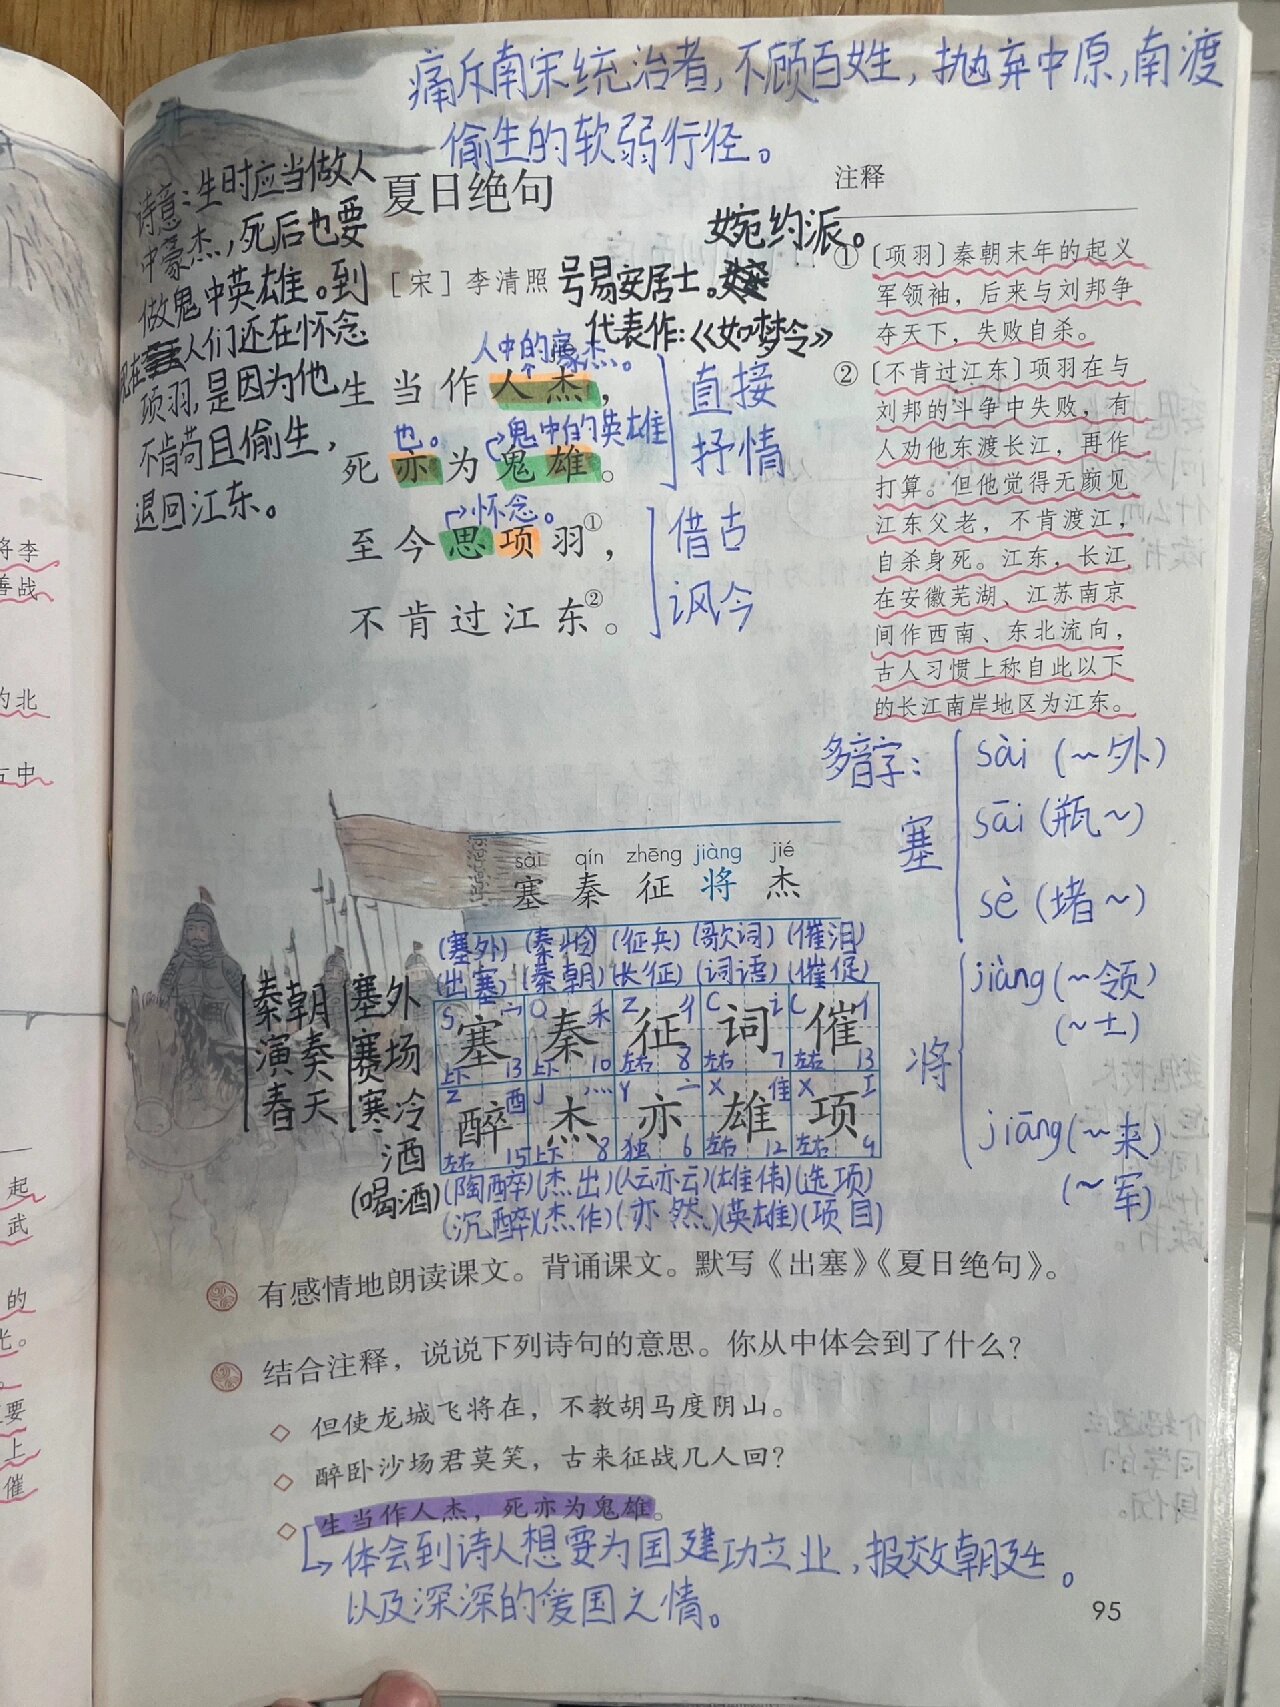 痛斥南宋统治者,不顾百姓,抛弃中原,南渡
偷生的软弱行径。
诗意:生时应当做人
中豪杰,死后也要
做鬼中英雄。到
现在人们还在怀念
项羽,是因为他
不肯苟且偷生,
退回江东。
夏日绝句
[宋]李清照 号易安居士。
婉约派。
代表作:《如梦令》
人中的豪杰。
生当作人杰,
也。 鬼中的英雄
死亦为鬼雄。
直接
抒情
怀念。
至今思项羽①,
不肯过江东②。
借古
讽今
注释
①[项羽]秦朝末年的起义
军领袖,后来与刘邦争
夺天下,失败自杀。
②[不肯过江东]项羽在与
刘邦的斗争中失败,有
人劝他东渡长江,再作
打算。但他觉得无颜见
江东父老,不肯渡江,
自杀身死。江东,长江
在安徽芜湖、江苏南京
间作西南、东北流向,
古人习惯上称自此以下
的长江南岸地区为江东。
多音字:
塞
sài(~外)
sāi(瓶~)
sè(堵~)
将
jiàng(~领)
(~士)
jiāng(~来)
(~军)
sài qín zhēng jiàng jié
塞 秦 征 将 杰
(塞外)(秦岭)(征兵)(歌词)(催泪)
(出塞)(秦朝)(长征)(词语)(催促)
S 宀 Q 禾 Z 彳 C 讠 C 亻
塞 秦 征 词 催
上下 13 上下 10 左右 8 左右 7 左右 13
Z 酉 J 灬 Y 亠 X 隹 X 工
醉 杰 亦 雄 项
左右 15 上下 8 独 6 左右 12 左右 9
(陶醉)(杰出)(人云亦云)(雄伟)(选项)
(沉醉)(杰作)(亦然)(英雄)(项目)
秦朝
演奏
春天
塞外
赛场
寒冷
酒
(喝酒)
有感情地朗读课文。背诵课文。默写《出塞》《夏日绝句》。
结合注释,说说下列诗句的意思。你从中体会到了什么?
◇ 但使龙城飞将在,不教胡马度阴山。
◇ 醉卧沙场君莫笑,古来征战几人回?
◇ 生当作人杰,死亦为鬼雄。
体会到诗人想要为国建功立业,报效朝廷。
以及深深的爱国之情。
95
将李
善战
的北
左中
起
武
的
光。
要
上
催